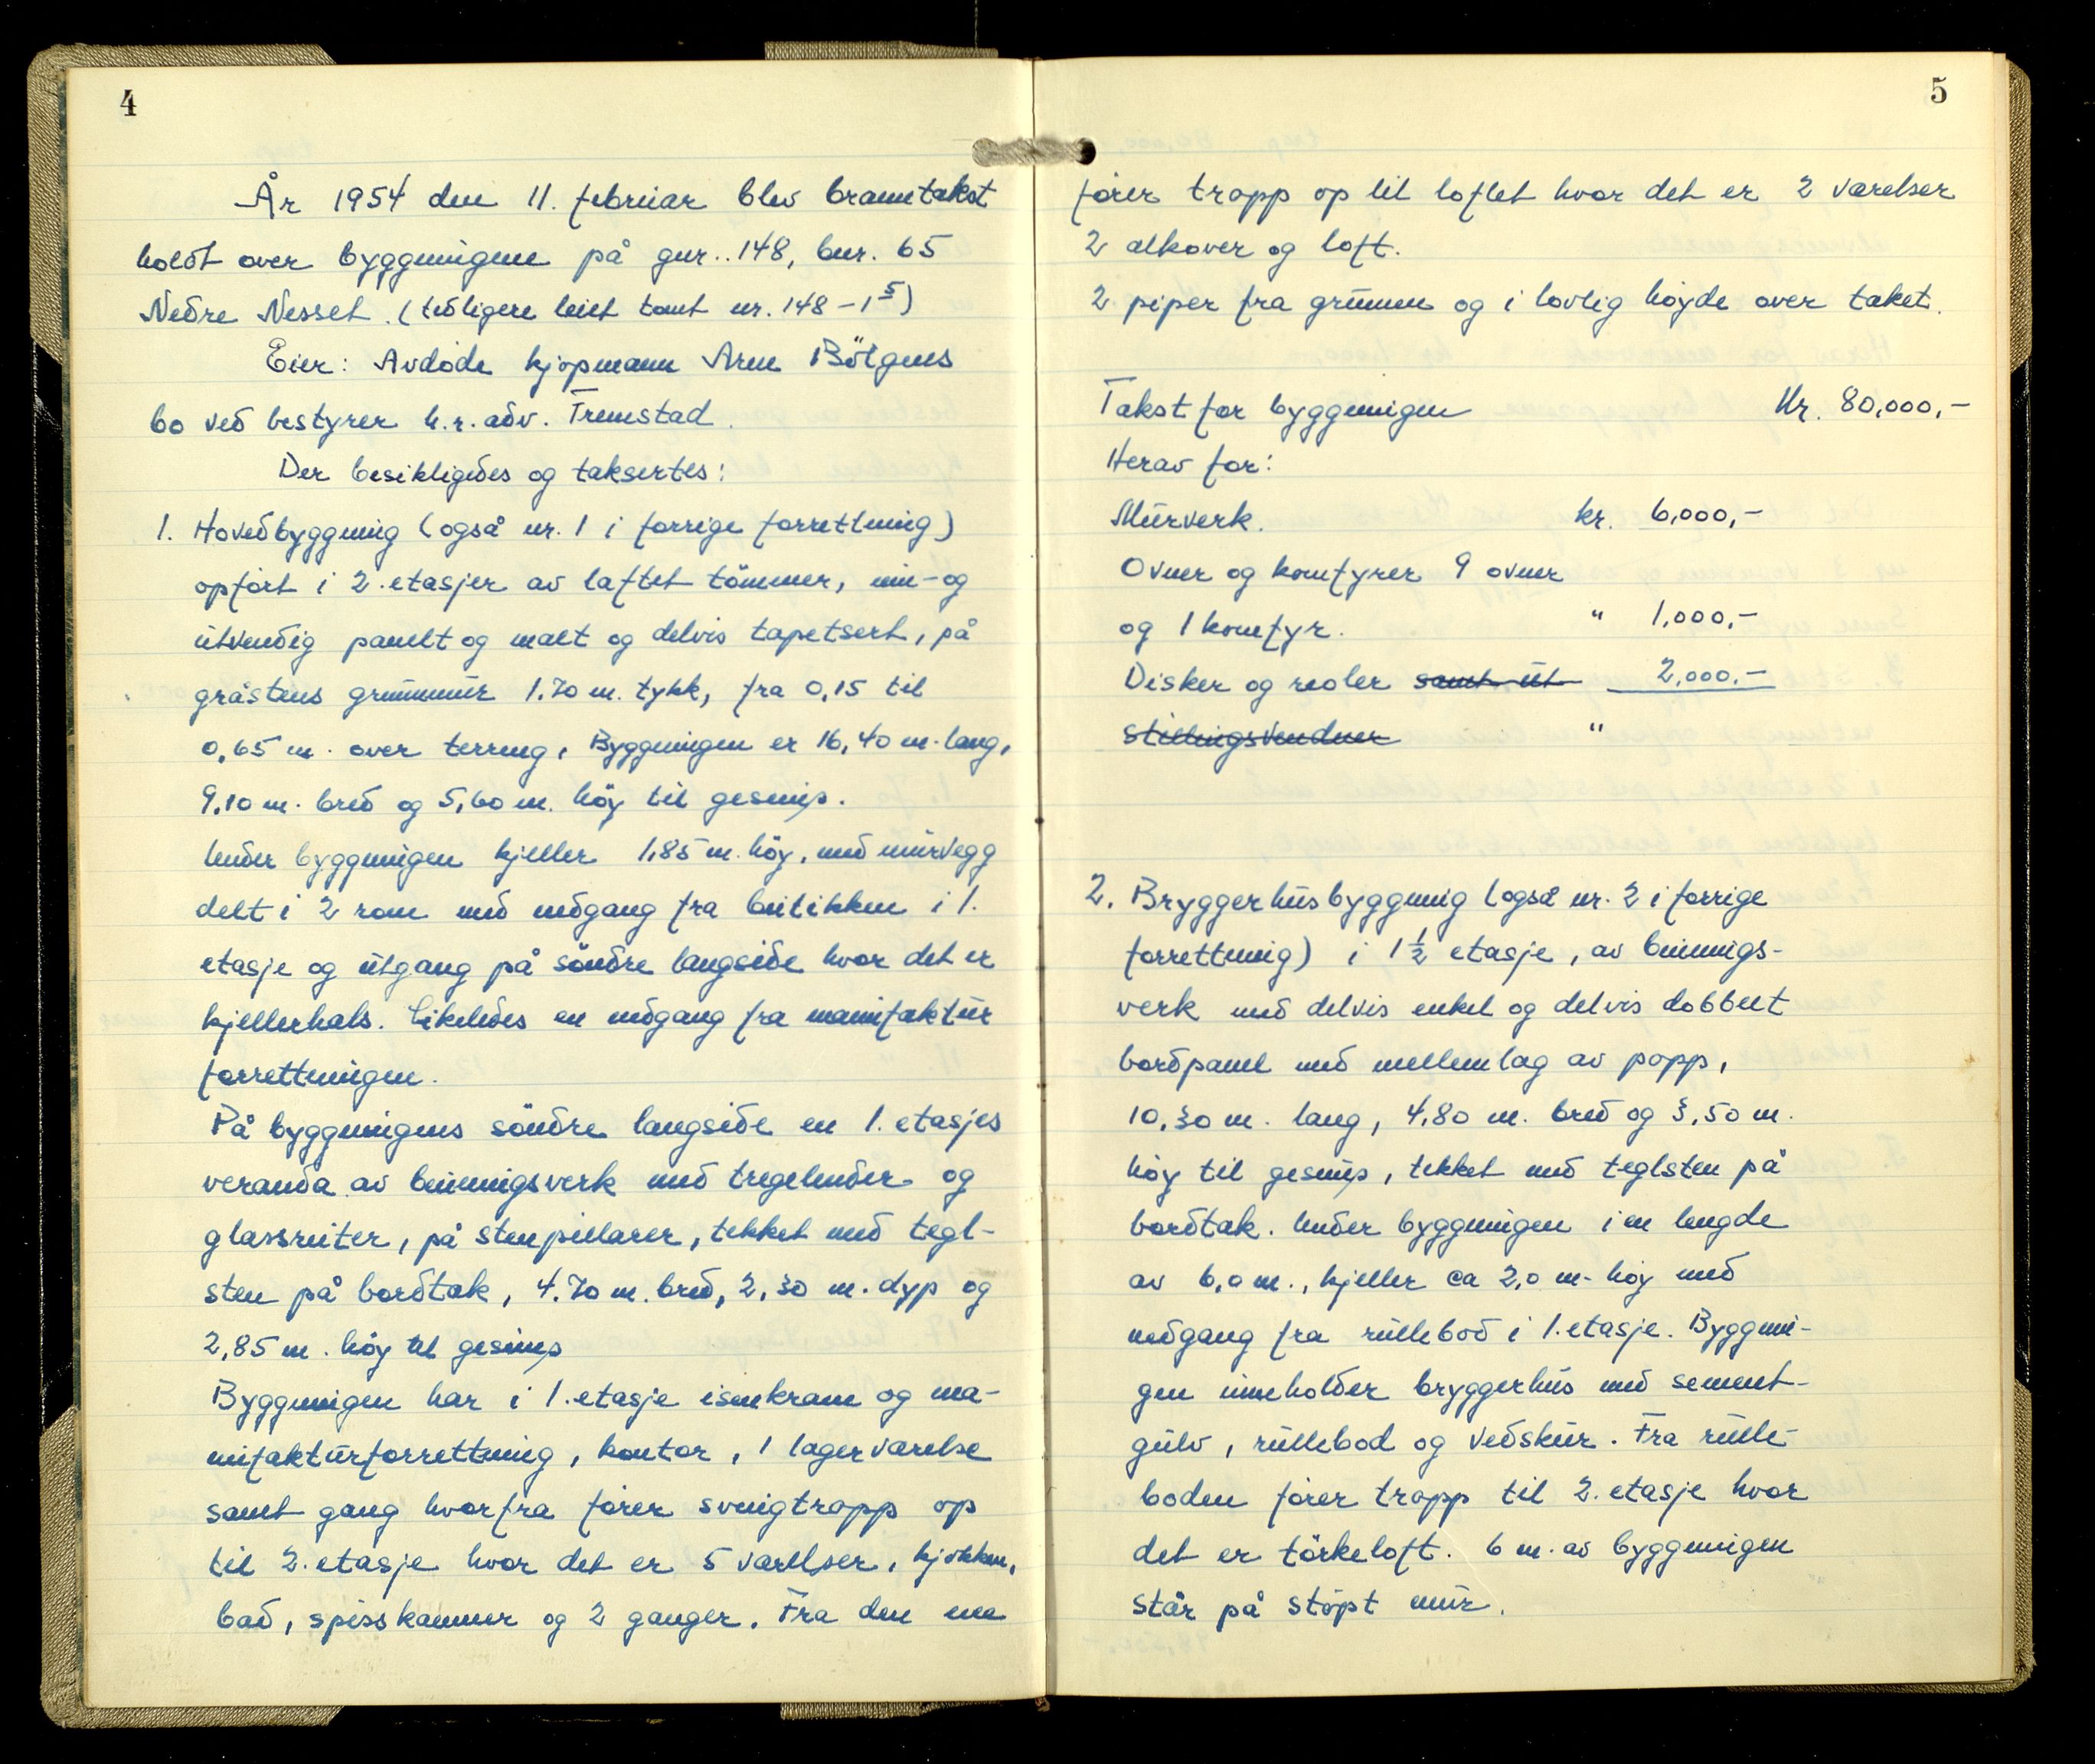 4
År 1954 den 11. februar blev branntakst
holdt over bygningene på gnr.. 148, bnr. 65
Nedre Nesset. (tidligere leiet tomt nr. 148 – 1⁵)
Eier: Avdøde kjøpmann Arne Bötgens
bo ved bestyrer h.r. adv. Tremstad.
Der besiktigedes og taksertes:
1. Hovedbygning (også nr. 1 i forrige forretning)
opført i 2. etasjer av laftet tömmer, inn- og
utvendig panelt og malt og delvis tapetsert, på
gråstens grunnmur 1.70 m. tykk, fra 0,15 til
0,65 m. over terreng, Bygningen er 16,40 m. lang,
9,10 m. bred og 5,60 m. höy til gesims.
Under bygningen kjeller 1,85 m. höy, med murvegg
delt i 2 rom med nedgang fra butikken i 1.
etasje og utgang på söndre langside hvor det er
kjellerhals. Likeledes en nedgang fra manufaktur
forretningen.
På bygningens söndre langside en 1. etasjes
veranda av binningsverk med tregelender og
glassruter, på stenpillarer, tekket med tegl-
sten på bordtak, 4.70 m. bred, 2,30 m. dyp og
2,85 m. höy til gesims
Bygningen har i 1. etasje isenkram og ma-
nufakturforretning, kontor, 1 lagerværelse
samt gang hvorfra fører svingtrapp op
til 2. etasje hvor det er 5 værelser, kjøkken,
bad, spisskammer og 2 ganger. Fra den ene
5
fører trapp op til loftet hvor det er 2 værelser
2 alkover og loft.
2 piper fra grunnen og i lovlig høyde over taket.
Takst for bygningen Kr. 80,000,-
Herav for:
Murverk. kr. 6,000,-
Ovner og komfyrer 9 ovner
og 1 komfyr. " 1,000,-
Disker og reoler samt ut- 2,000.-
stillingsvinduer "
2. Bryggerhusbygning (også nr. 2 i forrige
forretning) i 1½ etasje, av binnings-
verk med delvis enkel og delvis dobbelt
bordpanel med mellemlag av papp,
10,30 m. lang, 4,80 m. bred og 3,50 m.
høy til gesims, tekket med teglsten på
bordtak. Under bygningen i en lengde
av 6,0 m., kjeller ca 2,0 m. høy med
nedgang fra rullebod i 1. etasje. Bygnin-
gen inneholder bryggerhus med sement-
gulv, rullebod og vedskur. Fra rulle-
boden fører trapp til 2. etasje hvor
det er törkeloft. 6 m. av bygningen
står på støpt mur.